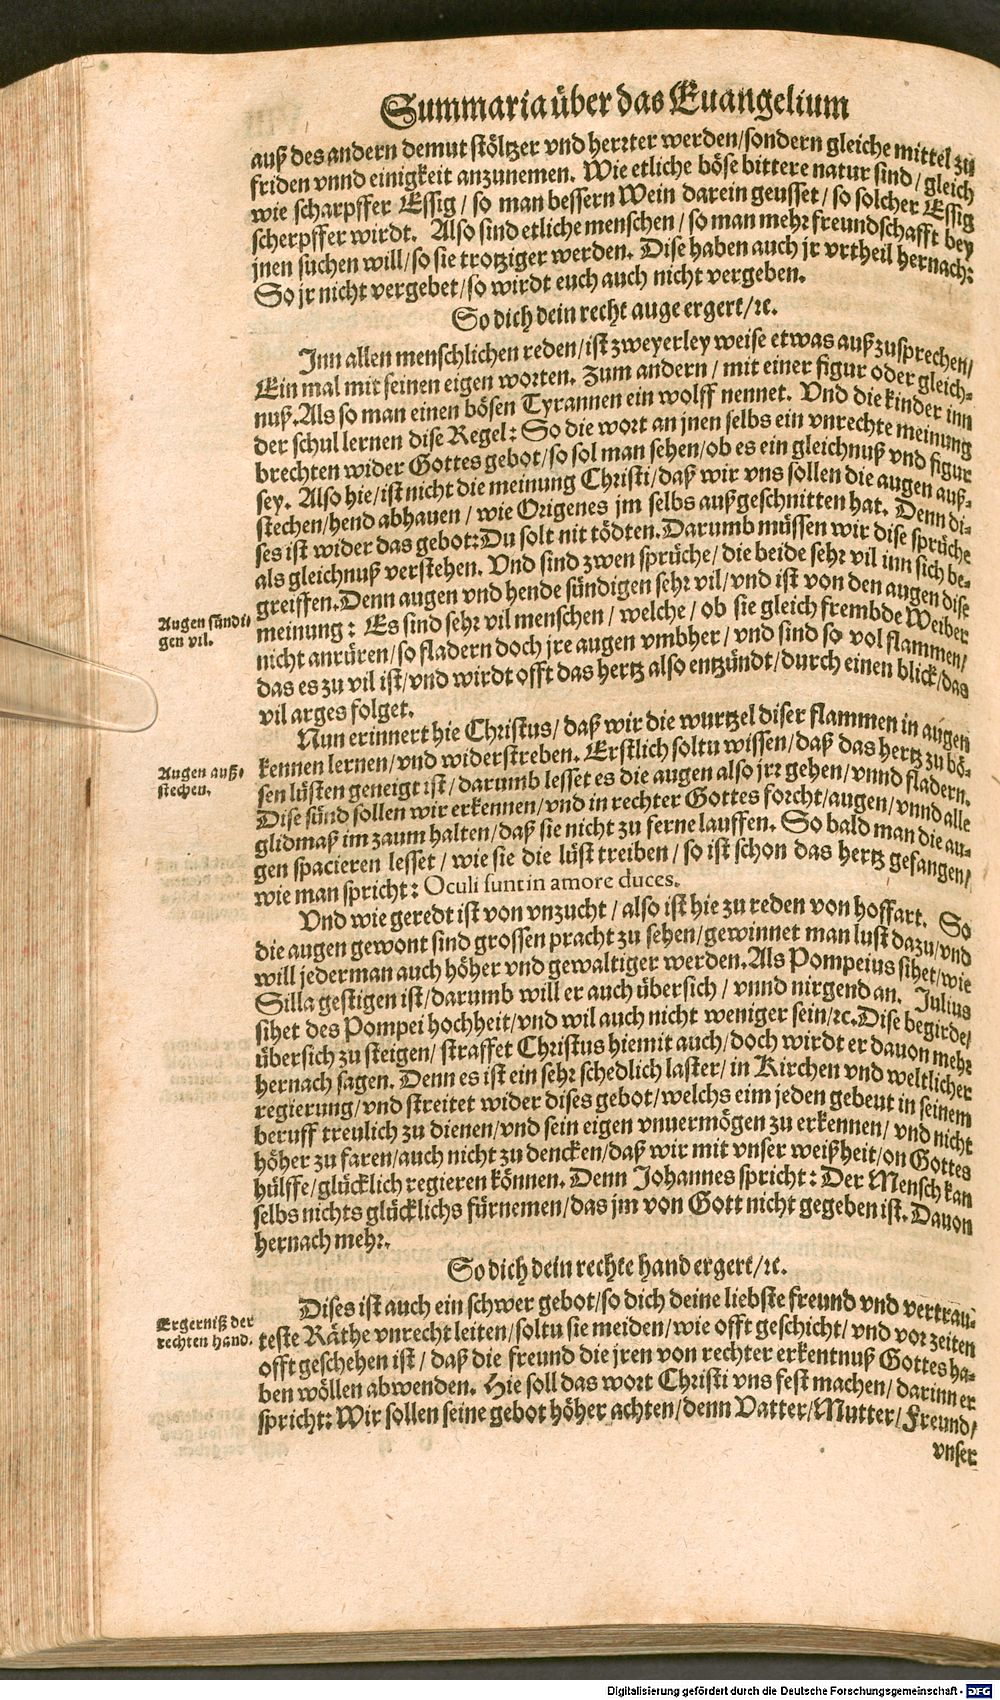 Summaria über das Euangelium
auß des andern demut stöltzer vnd herrter werden/sondern gleiche mittel zu
friden vnnd einigkeit anzunemen. Wie etliche böse bittere natur sind/gleich
wie scharpffer Essig/ so man bessern Wein darein geusset/ so solcher Essig
scherpffer wirdt. Also sind etliche menschen/ so man mehr freundschafft bey
jnen suchen will/so sie trotziger werden. Dise haben auch jr vrtheil hernach:
So jr nicht vergebet/so wirdt euch auch nicht vergeben.
So dich dein recht auge ergert/ꝛc.
Inn allen menschlichen reden/ist zweyerley weise etwas außzusprechen/
Ein mal mit seinen eigen worten. Zum andern/ mit einer figur oder gleich-
nuß. Als so man einen bösen Tyrannen ein wolff nennet. Vnd die kinder inn
der schul lernen dise Regel: So die wort an jnen selbs ein vnrechte meinung
brechten wider Gottes gebot/so sol man sehen/ob es ein gleichnuß vnd figur
sey. Also hie/ist nicht die meinung Christi/daß wir vns sollen die augen auß-
stechen/hend abhauen/ wie Origenes jm selbs außgeschnitten hat. Denn di-
ses ist wider das gebot: Du solt nit tödten. Darumb müssen wir dise sprüche
als gleichnuß verstehen. Vnd sind zwen sprüche/ die beide sehr vil inn sich be-
greiffen. Denn augen vnd hende sündigen sehr vil/vnd ist von den augen dise
Augen sündi-
gen vil.
meinung: Es sind sehr vil menschen/ welche/ ob sie gleich frembde Weiber
nicht anrüren/so fladern doch jre augen vmbher/ vnd sind so vol flammen/
das es zu vil ist/vnd wirdt offt das hertz also entzündt/durch einen blick/das
vil arges folget.
Nun erinnert hie Christus/ daß wir die wurtzel diser flammen in augen
Augen auß-
stechen.
kennen lernen/vnd widerstreben. Erstlich soltu wissen/daß das hertz zu bö-
sen lüsten geneigt ist/ darumb lesset es die augen also jrr gehen/vnnd fladern.
Dise sünd sollen wir erkennen/vnd in rechter Gottes forcht/augen/vnnd alle
glidmaß im zaum halten/daß sie nicht zu ferne lauffen. So bald man die au-
gen spacieren lesset/ wie sie die lüst treiben/ so ist schon das hertz gefangen/
wie man spricht: Oculi sunt in amore duces.
Vnd wie geredt ist von vnzucht/ also ist hie zu reden von hoffart. So
die augen gewont sind grossen pracht zu sehen/gewinnet man lust dazu/vnd
will jederman auch höher vnd gewaltiger werden. Als Pompeius sihet/wie
Silla gestigen ist/darumb will er auch übersich/ vnnd nirgend an. Julius
sihet des Pompei hochheit/vnd wil auch nicht weniger sein/ꝛc. Dise begirde/
übersich zu steigen/ straffet Christus hiemit auch/doch wirdt er dauon mehr
hernach sagen. Denn es ist ein sehr schedlich laster/ in Kirchen vnd weltlicher
regierung/vnd streitet wider dises gebot/welchs eim jeden gebeut in seinem
beruff treulich zu dienen/vnd sein eigen vnuermögen zu erkennen/ vnd nicht
höher zu faren/auch nicht zu dencken/daß wir mit vnser weißheit/on Gottes
hülffe/glücklich regieren können. Denn Johannes spricht: Der Mensch kan
selbs nichts glücklichs fürnemen/das jm von Gott nicht gegeben ist. Dauon
hernach mehr.
So dich dein rechte hand ergert/ꝛc.
Ergerniß der
rechten hand.
Dises ist auch ein schwer gebot/so dich deine liebste freund vnd vertrau-
teste Räthe vnrecht leiten/soltu sie meiden/wie offt geschicht/ vnd vor zeiten
offt geschehen ist/ daß die freund die jren von rechter erkentnuß Gottes ha-
ben wöllen abwenden. Hie soll das wort Christi vns fest machen/ darinn er
spricht: Wir sollen seine gebot höher achten/denn Vatter/Mutter/Freund/
vnser
Digitalisierung gefördert durch die Deutsche Forschungsgemeinschaft - DFG